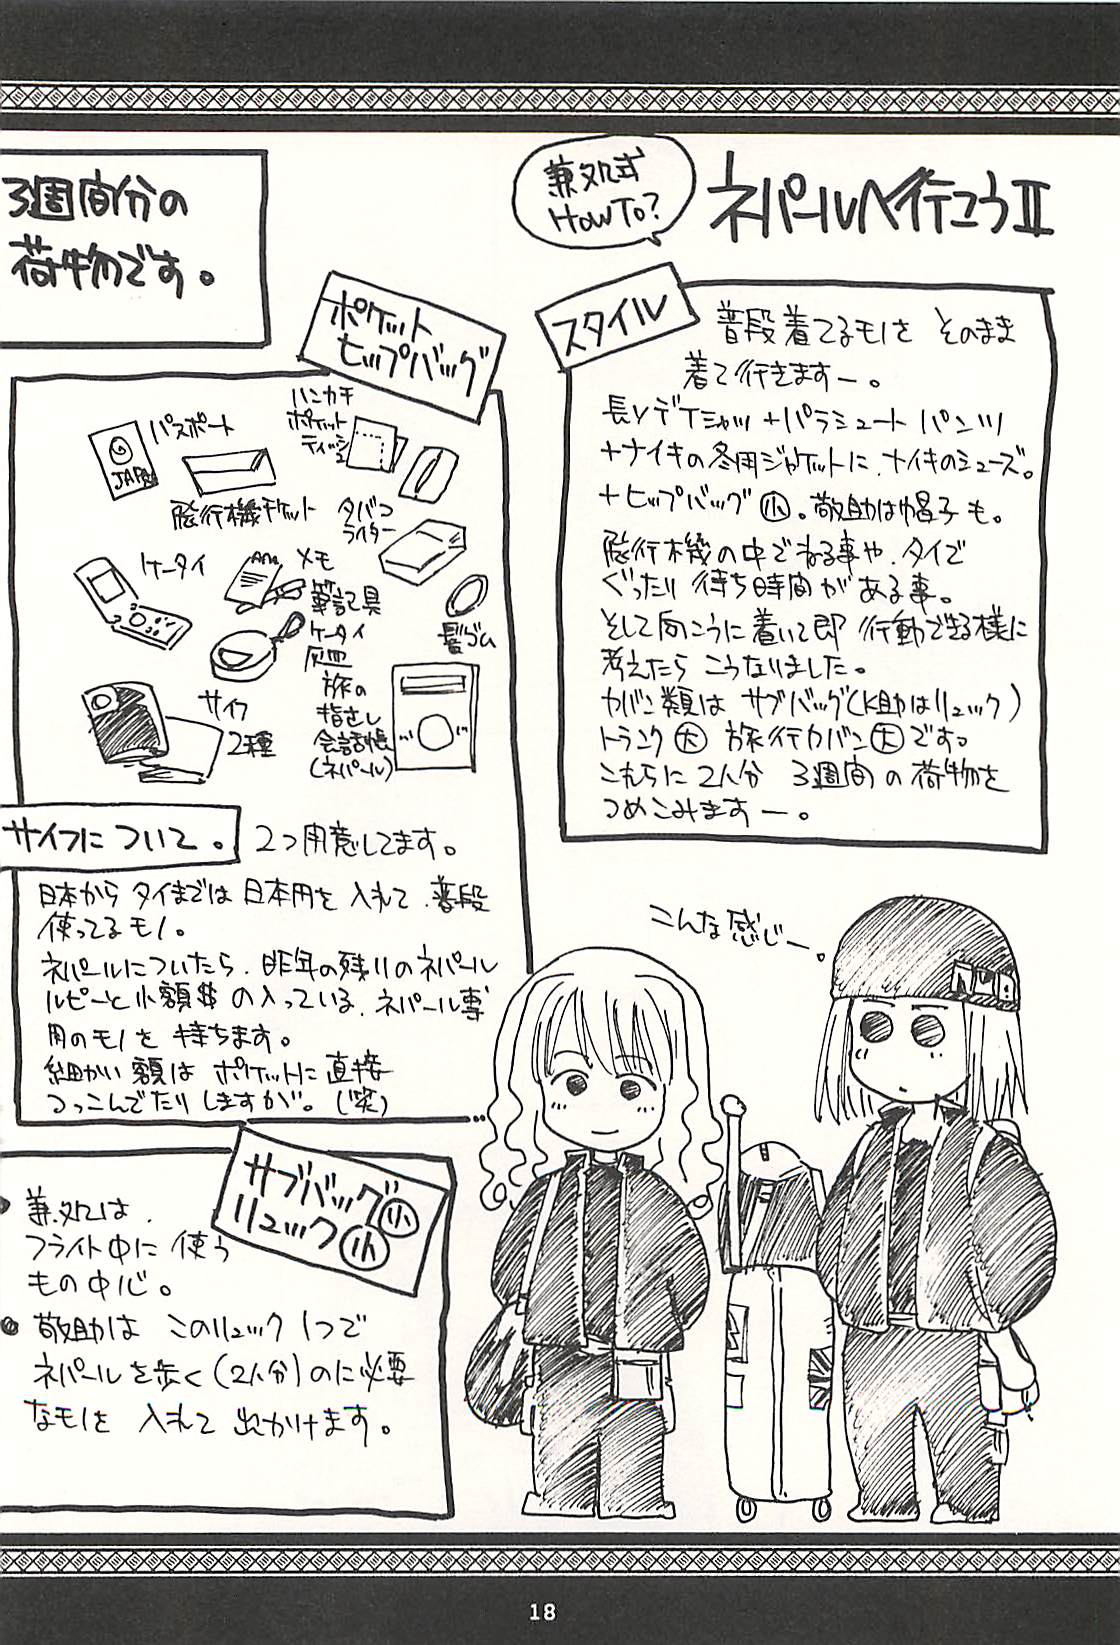 兼処式
HOWTO?
ネパールへ行こうⅡ
スタイル
普段着てるモノを そのまま
着て行きますー。
長Yデケシャツ+パラシュートパンツ
+ナイキの冬用ジャケットに、ナイキのシューズ。
+ヒップバッグ小。敬助は帽子も。
飛行機の中でねる事や、タイで
ぐったり待ち時間がある事。
そして向こうに着いて即 行動できる様に
考えたら こうなりました。
カバン類は サブバッグ(K助はリュック)
トランク大 旅行カバン大です。
これらに2人分 3週間の荷物を
つめこみますー。
3週間分の
荷物です。
ポケット
ヒップバッグ
パスポート
JAPAN
ハンカチ
ポケット
ティッシュ
飛行機チケット
タバコ
ライター
ケータイ
メモ
筆記具
ケータイ
灰皿
髪ゴム
サイフ
2種
旅の
指さし
会話帳
(ネパール)
サイフについて。
2つ用意してます。
日本から タイまでは 日本円を 入れて、普段
使ってるモノ。
ネパールについたら、昨年の残りのネパール
ルピーと小額$の入っている、ネパール専
用のモノを 持ちます。
細かい額は ポケットに直接
つっこんでたりしますが。(笑)
サブバッグ小
リュック小
兼処は、
フライト中に 使う
もの中心。
敬助は このリュック1つで
ネパールを歩く(2人分)のに必要
なモノを 入れて 出かけます。
こんな感じー。
18